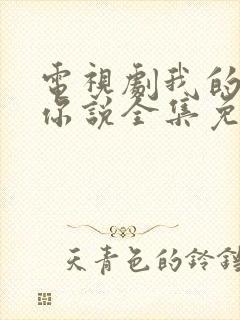 電視劇我的
你說全集免
天青色的鈴鐺